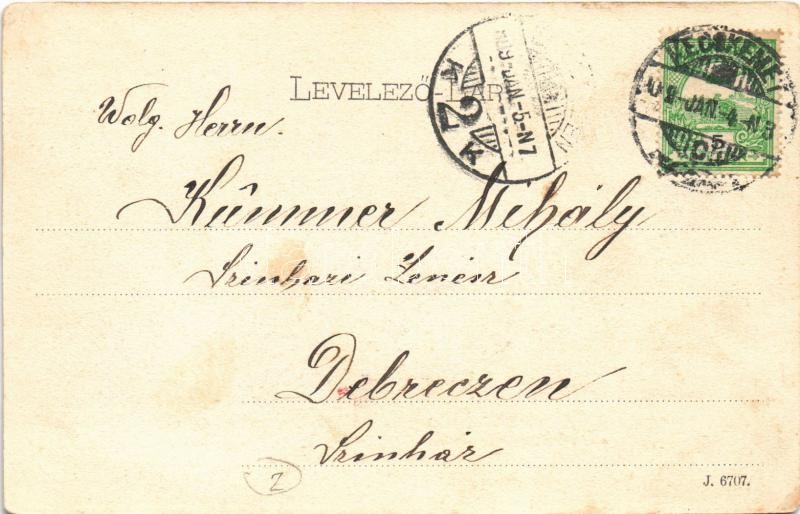 LEVELEZŐ-LAP
Wolg. Herrn.
Kümmer Mihály
Szinhazi Zenész
Debreczen
Szinház
2
J. 6707.
KECSKEMÉT
909 JAN -4 N8
909 JAN -5 N7
K 2 K
5